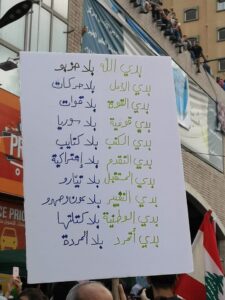 بدي الله بلا حزبو
بدي الأمل بلا حركات
بدي القوة بلا قوات
بدي قومية بلا سوريا
بدي الكتب بلا كتايب
بدي التقدم بلا إشتراكية
بدي المستقبل بلا تيارو
بدي التغيير بلا عون وصهرو
بدي الوطنية بلا كتلتها
بدي أتمرد بلا المردة
PRICE